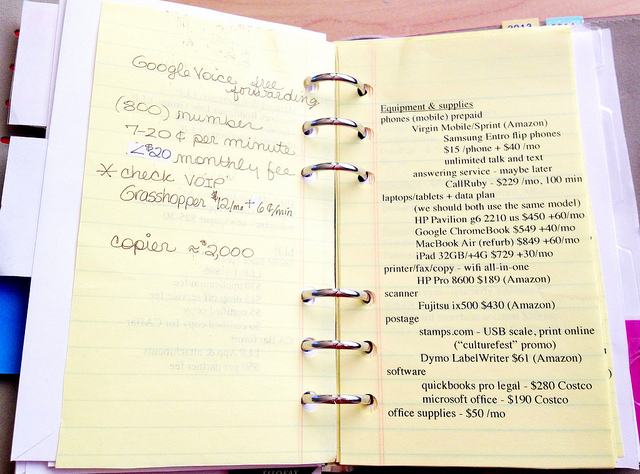 Google Voice free
forwarding
(800) number
7-20 ¢ per minute
<$20 monthly fee
* check VOIP
Grasshopper $12/mo + 6¢/min
copier ≈ $2,000
2013
Equipment & supplies
phones (mobile) prepaid
Virgin Mobile/Sprint (Amazon)
Samsung Entro flip phones
$15 /phone + $40 /mo
unlimited talk and text
answering service - maybe later
CallRuby - $229 /mo, 100 min
laptops/tablets + data plan
(we should both use the same model)
HP Pavilion g6 2210 us $450 +60/mo
Google ChromeBook $549 +40/mo
MacBook Air (refurb) $849 +60/mo
iPad 32GB/+4G $729 +30/mo
printer/fax/copy - wifi all-in-one
HP Pro 8600 $189 (Amazon)
scanner
Fujitsu ix500 $430 (Amazon)
postage
stamps.com - USB scale, print online
("culturefest" promo)
Dymo LabelWriter $61 (Amazon)
software
quickbooks pro legal - $280 Costco
microsoft office - $190 Costco
office supplies - $50 /mo